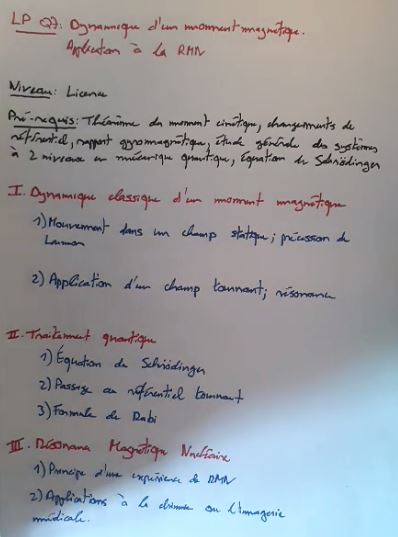 LP Q7: Dynamique d'un moment magnétique.
Application à la RMN
Niveau: Licence
Pré-requis: Théorème du moment cinétique, changements de
référentiel, rapport gyromagnétique, étude générale des systèmes
à 2 niveaux en mécanique quantique, équation de Schrödinger
I. Dynamique classique d'un moment magnétique
1) Mouvement dans un champ statique; précession de
Larmor
2) Application d'un champ tournant; résonance
II. Traitement quantique
1) Équation de Schrödinger
2) Passage au référentiel tournant
3) Formule de Rabi
III. Résonance Magnétique Nucléaire
1) Principe d'une expérience de RMN
2) Applications à la chimie ou l'imagerie
médicale.